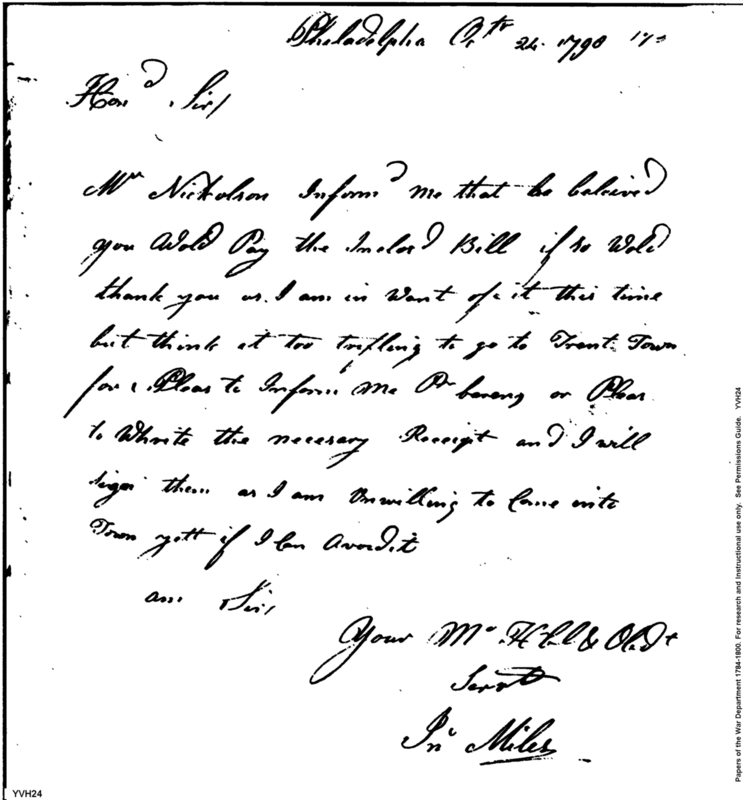 Philadelphia Octr 24. 1798
Hond Sir/
Mr Nickolson Informd me that he beleived
you Wold Pay the Inclosd Bill if so Wold
thank you as I am in Want of it this time
but think it too trifling to go to Trent Town
for. Pleas to Inform me Pr bearrer or Pleas
to Whrite the necesary Receipt and I will
sign them as I am Unwilling to Come into
Town yett if I Can Avord it
am Sir,
Your Mo Hbl & Obedt
Servt
Jno Miles
Papers of the War Department 1784-1800. For research and instructional use only. See Permissions Guide. YVH24
YVH24